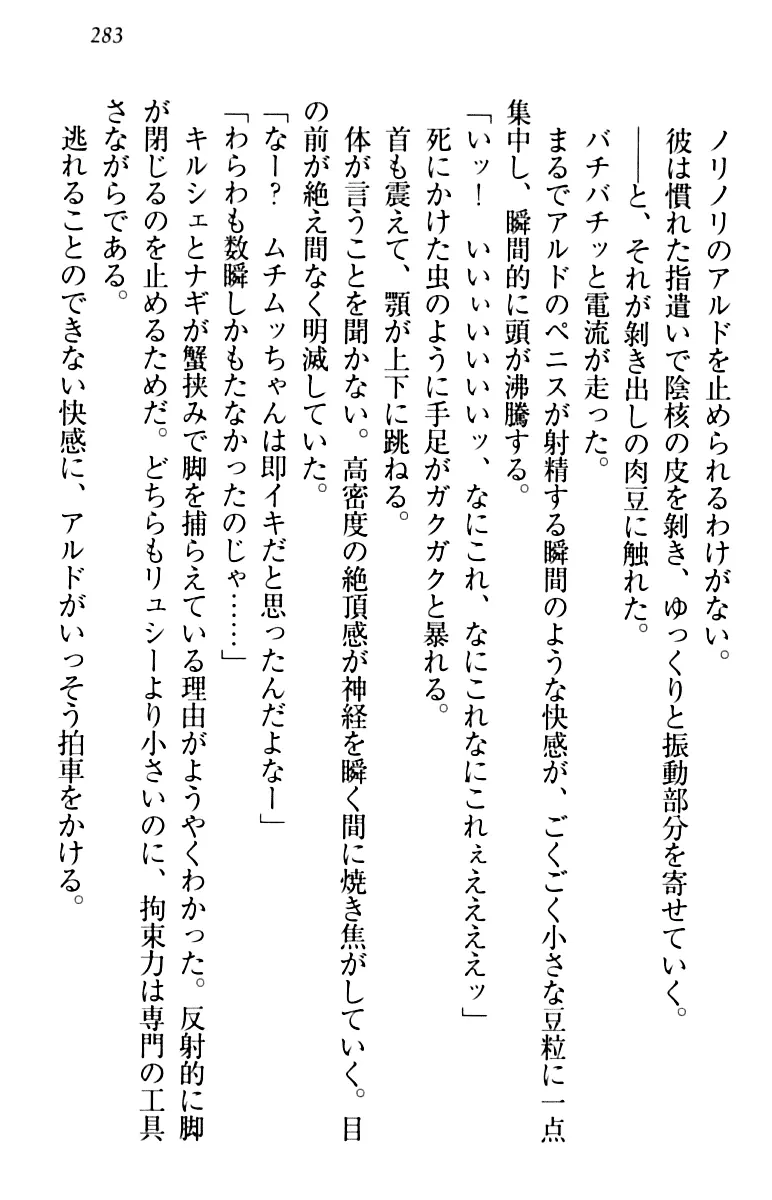 283
ノリノリのアルドを止められるわけがない。
彼は慣れた指遣いで陰核の皮を剝き、ゆっくりと振動部分を寄せていく。
――と、それが剝き出しの肉豆に触れた。
バチバチッと電流が走った。
まるでアルドのペニスが射精する瞬間のような快感が、ごくごく小さな豆粒に一点
集中し、瞬間的に頭が沸騰する。
「いッ！　いいぃいいいいッ、なにこれ、なにこれなにこれぇええええッ」
死にかけた虫のように手足がガクガクと暴れる。
首も震えて、顎が上下に跳ねる。
体が言うことを聞かない。高密度の絶頂感が神経を瞬く間に焼き焦がしていく。目
の前が絶え間なく明滅していた。
「なー？　ムチムッちゃんは即イキだと思ったんだよなー」
「わらわも数瞬しかもたなかったのじゃ……」
キルシェとナギが蟹挟みで脚を捕らえている理由がようやくわかった。反射的に脚
が閉じるのを止めるためだ。どちらもリュシーより小さいのに、拘束力は専門の工具
さながらである。
逃れることのできない快感に、アルドがいっそう拍車をかける。